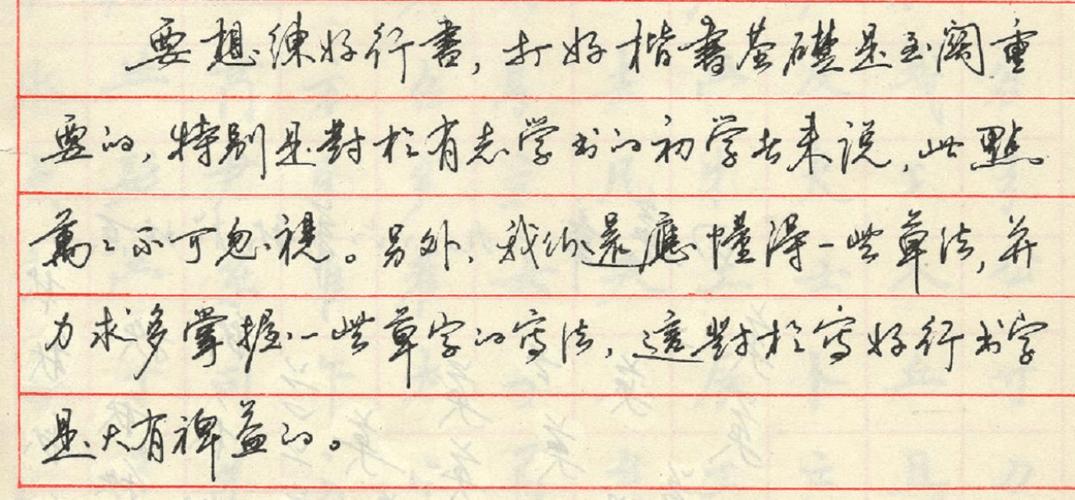 要想練好行書，打好楷書基礎是至關重
要的，特别是對於有志学书的初学者来説，此點
萬萬不可忽視。另外，我们還應懂得一些草法，并
力求多掌握一些草字的寫法，這對於寫好行书字
是大有裨益的。